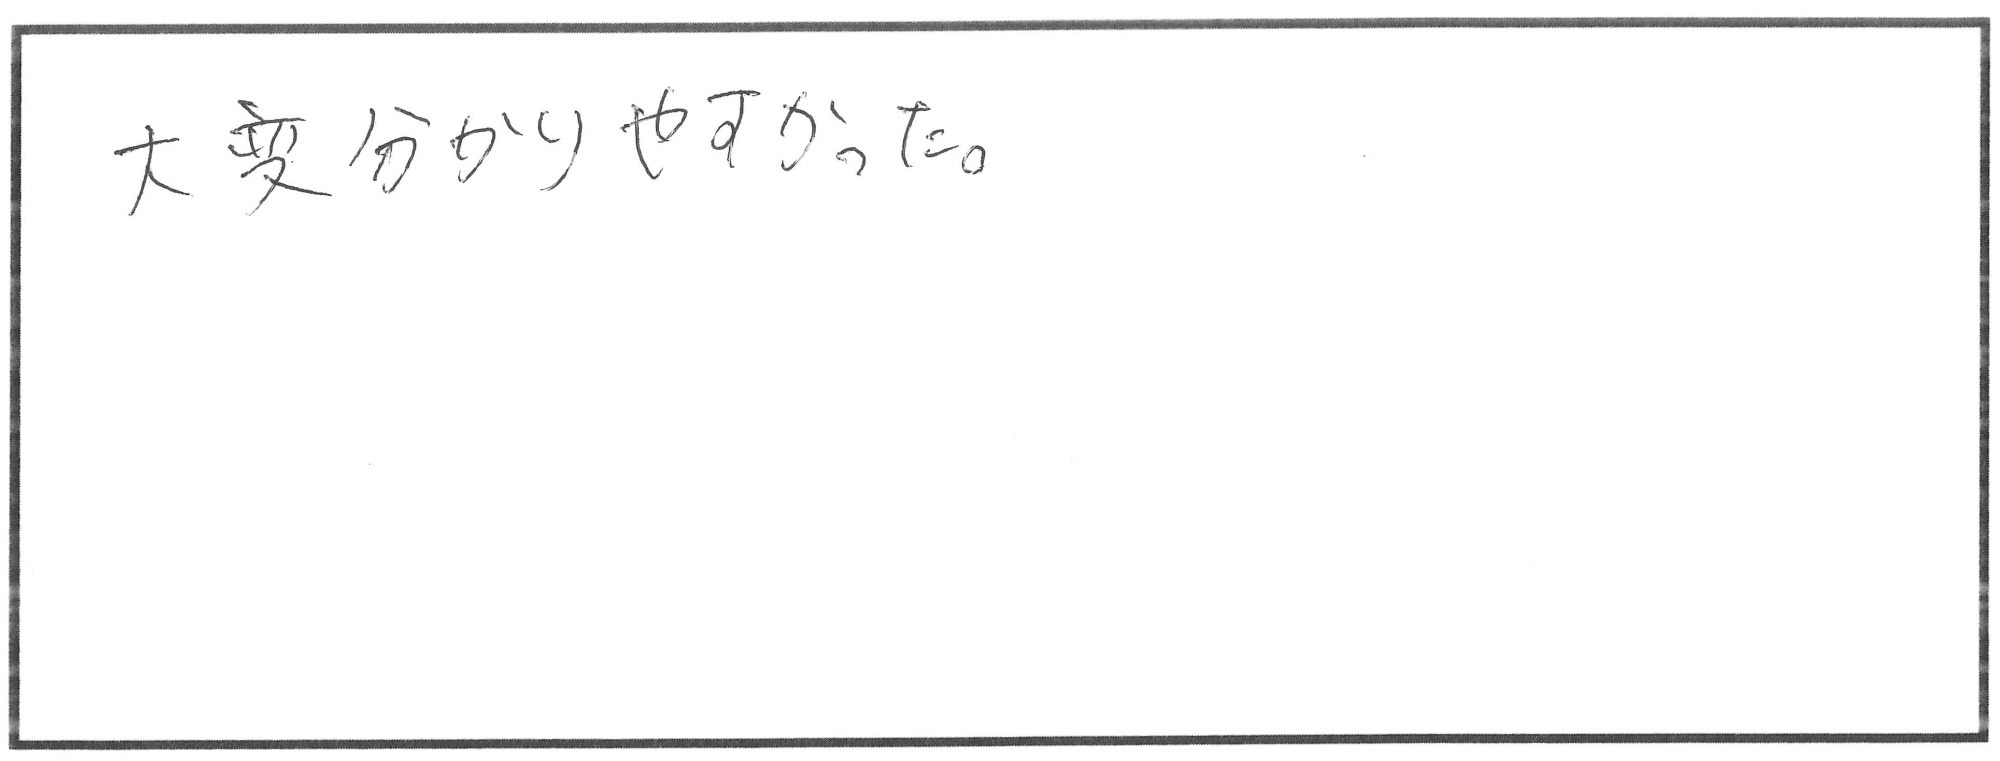 大変分かりやすかった。